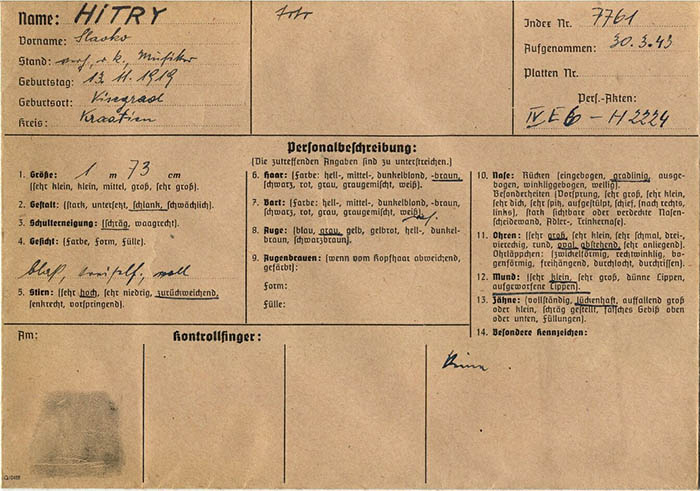 Name: HITRY
Vorname: Slavko
Stand: verh., r. k., Musiker
Geburtstag: 13. 11. 1919
Geburtsort: Visegrad
Kreis: Kroatien
Foto
Index Nr. 7761
Aufgenommen: 30.3.43
Platten Nr.
Pers.-Akten:
IV E 6 - H 2224
Personalbeschreibung:
(Die zutreffenden Angaben sind zu unterstreichen.)
1. Größe: 1 m 73 cm
(sehr klein, klein, mittel, groß, sehr groß).
2. Gestalt: (stark, untersetzt, schlank, schwächlich).
3. Schulterneigung: (schräg, waagrecht).
4. Gesicht: (Farbe, Form, Fülle).
blaß, voll
5. Stirn: (sehr hoch, sehr niedrig, zurückweichend,
senkrecht, vorspringend).
6. Haar: (Farbe: hell-, mittel-, dunkelblond, -braun,
schwarz, rot, grau, graugemischt, weiß).
7. Bart: (Farbe: hell-, mittel-, dunkelblond, -braun,
schwarz, rot, grau, graugemischt, weiß).
8. Auge: (blau, grau, gelb, gelbrot, hell-, dunkel-
braun, schwarzbraun).
9. Augenbrauen: (wenn vom Kopfhaar abweichend,
gefärbt):
Form:
Fülle:
10. Nase: Rücken (eingebogen, gradlinig, ausge-
bogen, winkliggebogen, wellig).
Besonderheiten (Vorsprung, sehr groß, sehr klein,
sehr dick, sehr spitz, aufgestülpt, schief, nach rechts,
links), stark sichtbare oder verdeckte Nasen-
scheidewand, Adler-, Trinkernase).
11. Ohren: (sehr groß, sehr klein, sehr schmal, drei-
viereckig, rund, oval, abstehend, sehr anliegend).
Ohrläppchen: (zwickelförmig, rechtwinklig, bo-
genförmig, freihängend, durchlocht, durchrissen).
12. Mund: (sehr klein, sehr groß, dünne Lippen,
aufgeworfene Lippen).
13. Zähne: (vollständig, lückenhaft, auffallend groß
oder klein, schräg gestellt, falsches Gebiß oben
oder unten, Füllungen).
14. Besondere Kennzeichen:
Am:
Kontrollfinger: